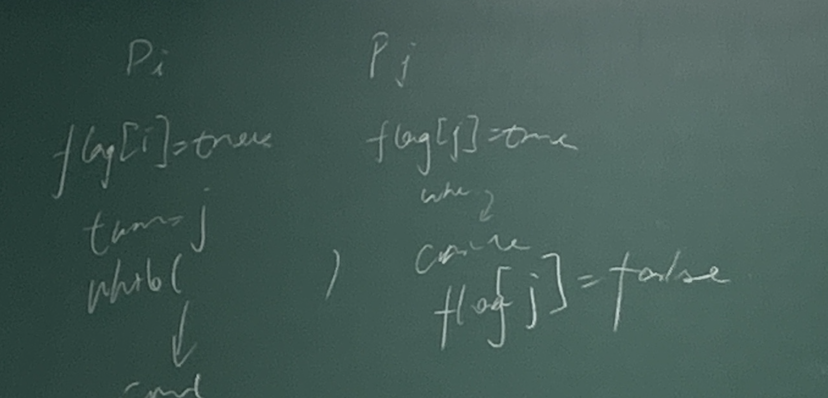 Pi
flag[i]=true
turn=j
while(            )
Pj
flag[j]=true
flag[j]=false